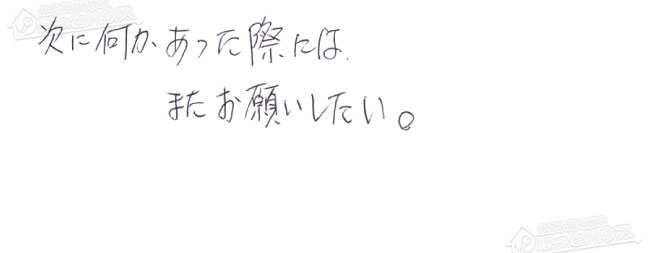 次に何か、あった際には、
またお願いしたい。